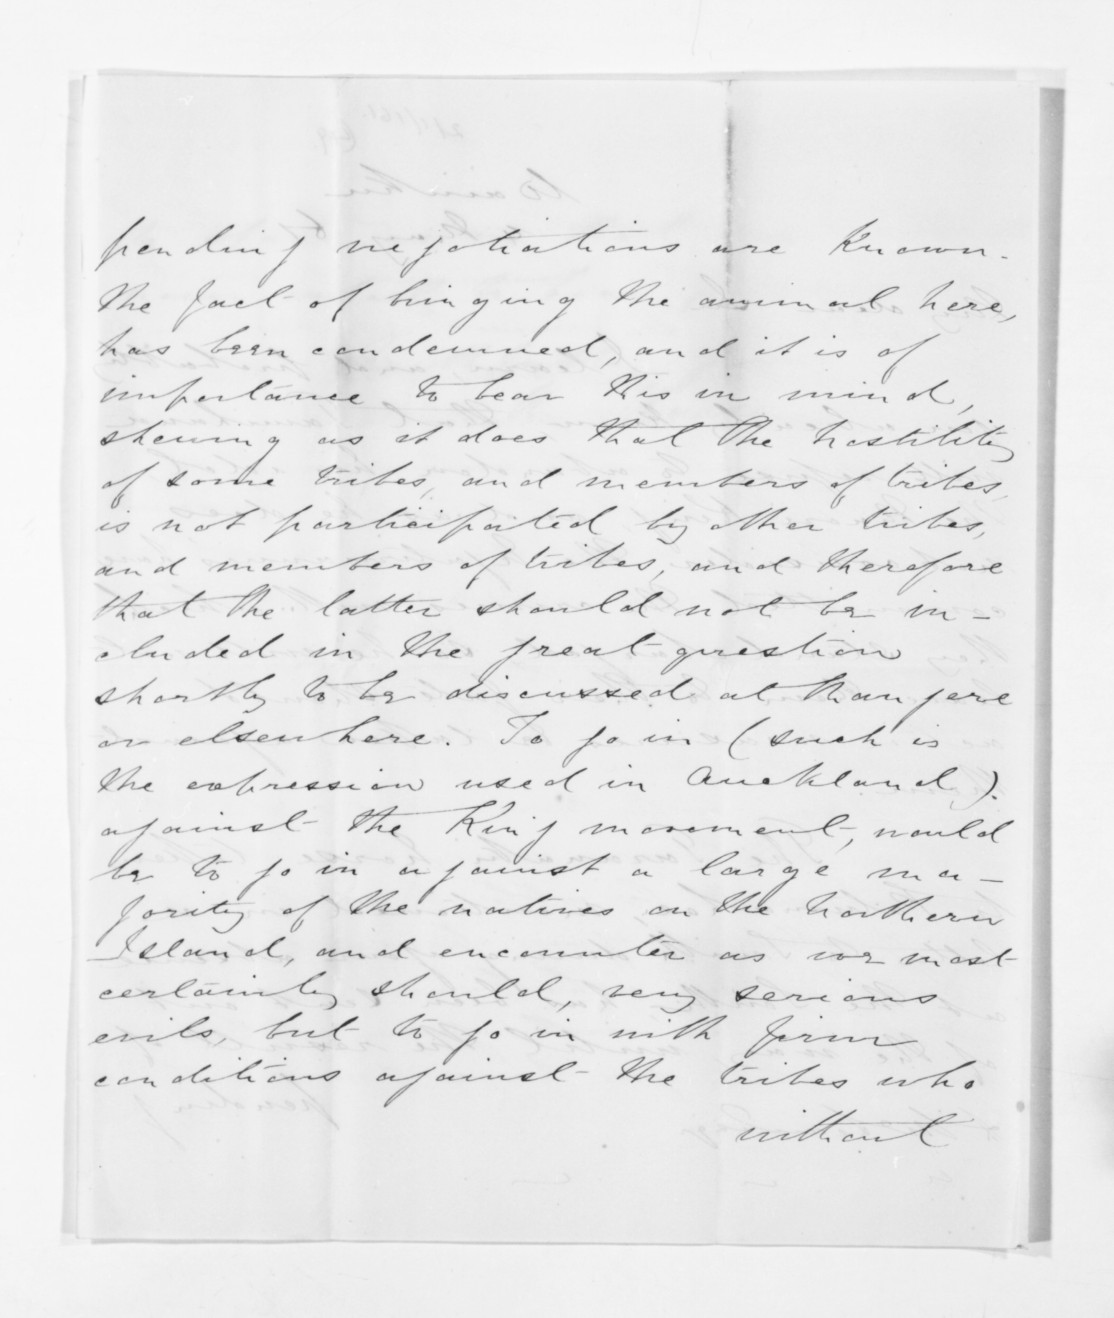 pending negotiations are known.
The fact of bringing the animal here,
has been condemned, and it is of
importance to bear this in mind,
shewing as it does that the hostility
of some tribes, and members of tribes,
is not participated by other tribes,
and members of tribes, and therefore
that the latter should not be in-
cluded in the great question
shortly to be discussed at
or elsewhere. To go in (such is
the expression used in Auckland).
against the King movement, would
be to go in against a large ma-
jority of the natives on the Northern
Island, and encounter as we most
certainly should, very serious
evils, but to go in with firm
conditions against the tribes who
without